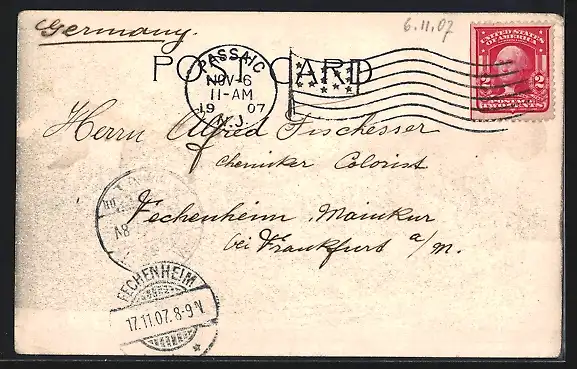 Germany.
6.11.07
UNITED STATES OF AMERICA
2 2
POSTAGE
TWO CENTS
PASSAIC
NOV-6
11-AM
19 07
N.J.
POST CARD
Herrn Alfred Fischesser
Chemiker Colorist
Fechenheim Mainkur
bei Frankfurt a/m.
FECHENHEIM
17.11.07. 8-9 V